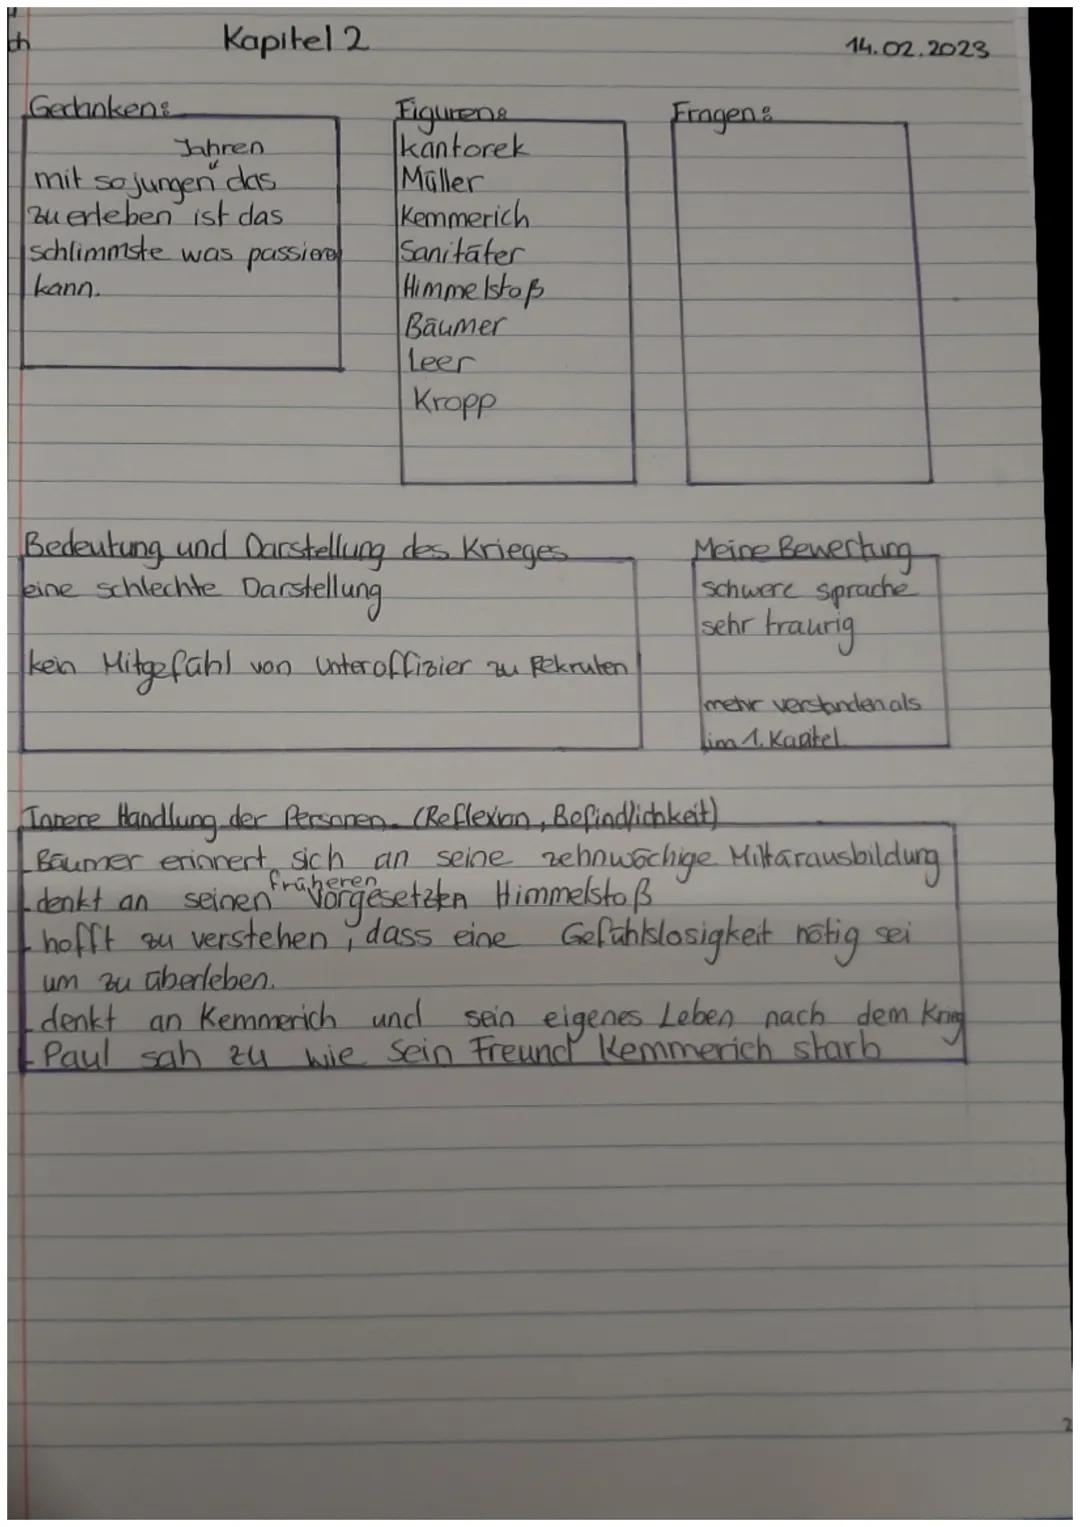 ch
Kapitel 2
14.02.2023
Gedanken:
Jahren
mit so jungen " das
zu erleben ist das
schlimmste was passieren
kann.
Figuren:
Kantorek
Müller
Kemmerich
Sanitäter
Himmelstoß
Bäumer
Leer
Kropp
Fragen:
Bedeutung und Darstellung des Krieges
eine schlechte Darstellung
kein Mitgefühl von Unteroffizier zu Rekruten
Meine Bewertung
schwere sprache
sehr traurig
mehr verstanden als
im 1. Kapitel
Innere Handlung der Personen. (Reflexion, Befindlichkeit)
- Bäumer erinnert sich an seine zehnwöchige Militärausbildung
früheren
- denkt an seinen Vorgesetzten Himmelstoß
- hofft zu verstehen, dass eine Gefühlslosigkeit nötig sei
um zu überleben.
- denkt an Kemmerich und sein eigenes Leben nach dem Krieg
- Paul sah zu wie sein Freund Kemmerich starb
2